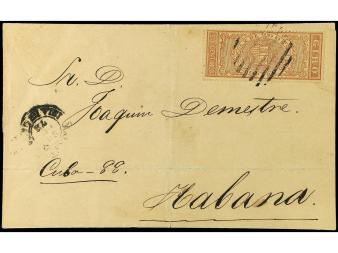 Sr. D
Joaquin Demestre.
Cuba - 88
Habana.